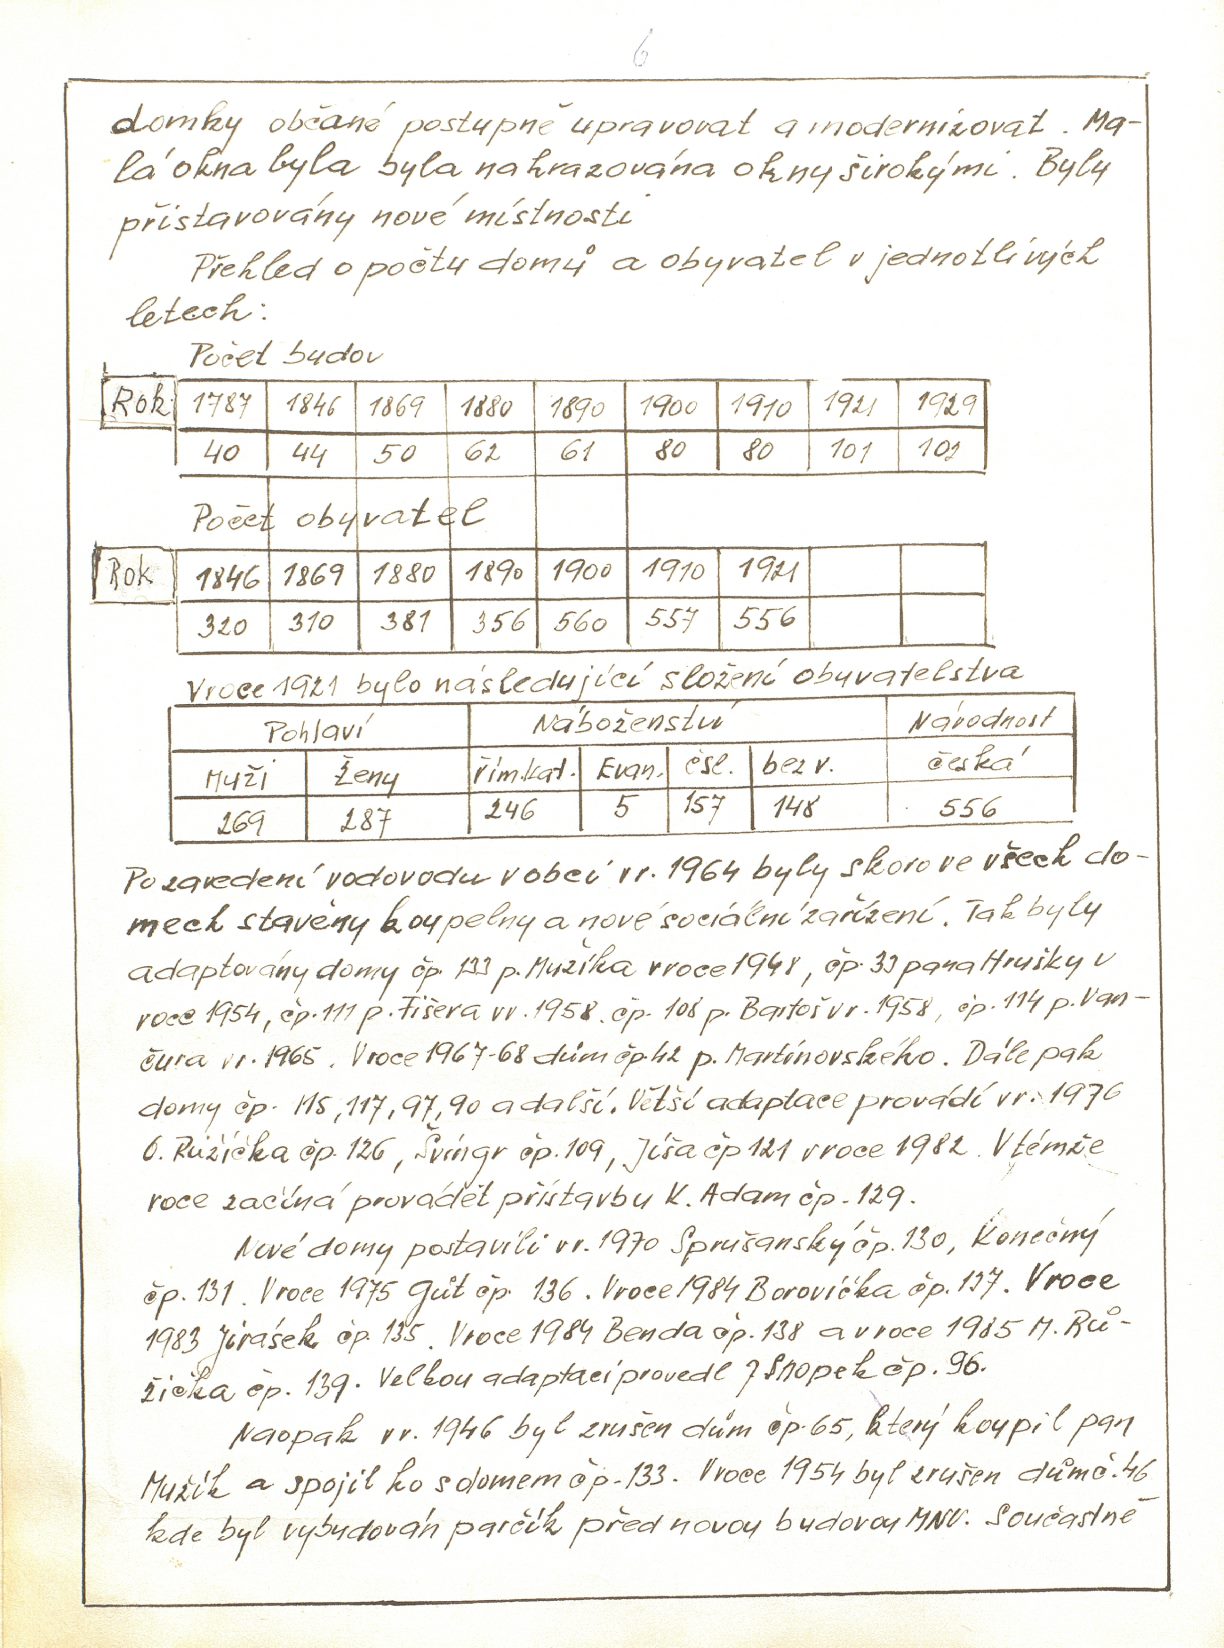 6
domky občané postupně upravovat a modernizovat. Ma-
lá okna byla byla nahrazována okny širokými. Byly
přistavovány nové místnosti
Přehled o počtu domů a obyvatel v jednotlivých
letech:
Počet budov
Rok 1787 1846 1869 1880 1890 1900 1910 1921 1929
40 44 50 62 61 80 80 101 101
Počet obyvatel
Rok 1846 1869 1880 1890 1900 1910 1921
320 310 381 356 560 557 556
V roce 1921 bylo následující složení obyvatelstva
Pohlaví Náboženství Národnost
Muži Ženy řím.kat. Evan. čsl. bez v. česká
269 287 246 5 157 148 556
Po zavedení vodovodu v obci v r. 1964 byly skoro ve všech do-
mech stavěny koupelny a nové sociální zařízení. Tak byly
adaptovány domy čp. 133 p. Mužíka v roce 1948, čp. 33 pana Hrušky v
roce 1954, čp. 111 p. Fišera v r. 1958. čp. 108 p. Bartoš v r. 1958, čp. 114 p. Van-
čura v r. 1965. V roce 1967-68 dům čp 42 p. Martinovského. Dále pak
domy čp. 115, 117, 97, 90 a další. Větší adaptace provádí v r. 1976
O. Růžička čp. 126, Švingr čp. 109, Jíša čp 121 v roce 1982. V témže
roce začíná provádět přístavbu K. Adam čp. 129.
Nové domy postavili v r. 1970 Sprušanský čp. 130, Konečný
čp. 131. V roce 1975 Gút čp. 136. V roce 1984 Borovička čp. 137. V roce
1983 Jirásek čp. 135. V roce 1984 Benda čp. 138 a v roce 1985 M. Rů-
žička čp. 139. Velkou adaptaci provedl J Snopek čp. 96.
Naopak v r. 1946 byl zrušen dům čp. 65, který koupil pan
Mužík a spojil ho s domem čp. 133. V roce 1954 byl zrušen dům č. 46
kde byl vybudován parčík před novou budovou MNV. Součastně